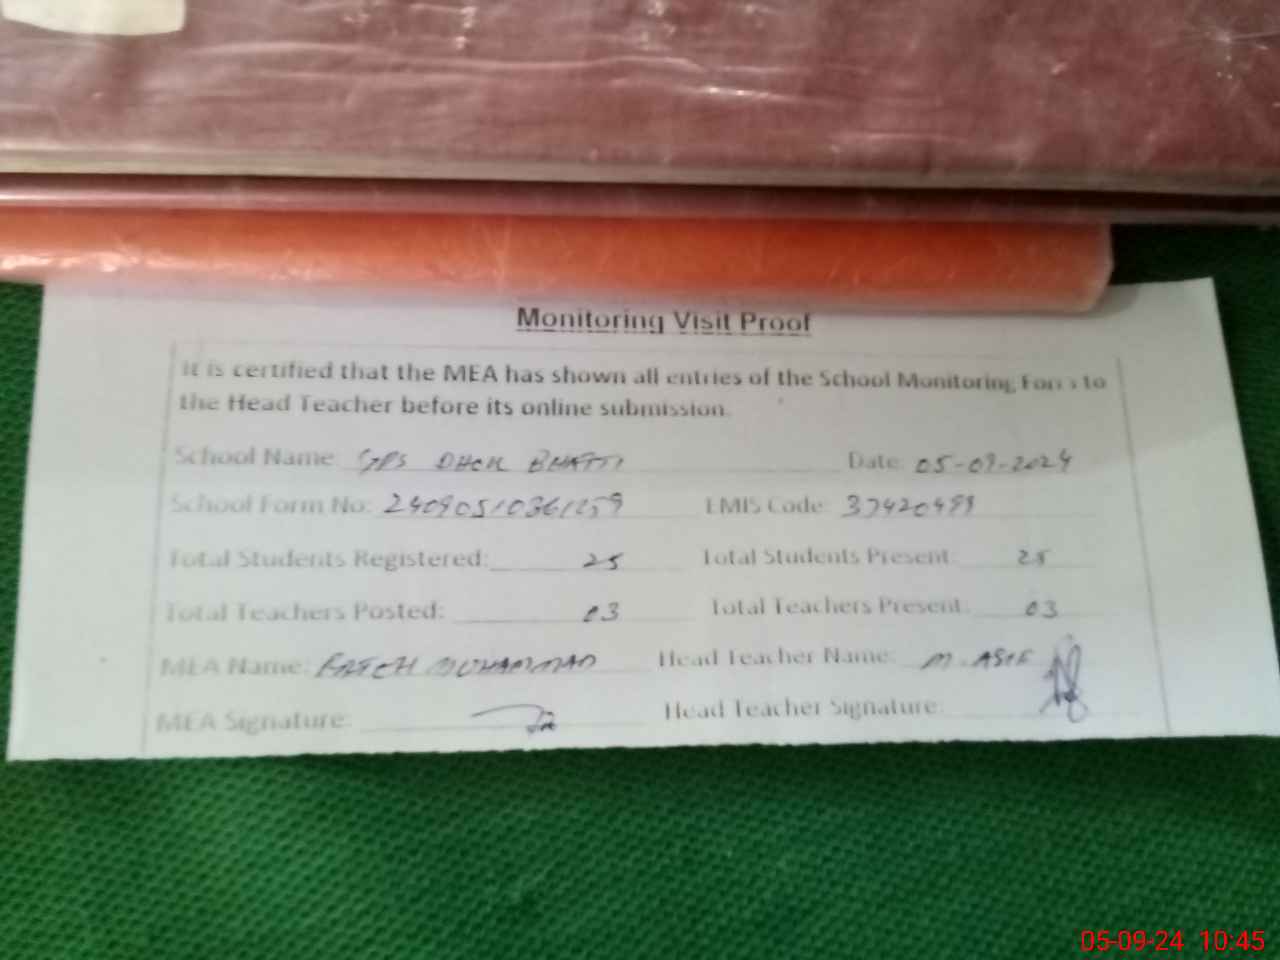 Monitoring Visit Proof
It is certified that the MEA has shown all entries of the School Monitoring to
the Head Teacher before its online submission.
School Name: GPS DHOK BHATTI Date: 05-09-2024
School Form No: EMIS Code:
Total Students Registered: 25 Total Students Present: 25
Total Teachers Posted: 03 Total Teachers Present: 03
MEA Name: FATEH MUHAMMAD Head Teacher Name: M. ASIF
MEA Signature: Head Teacher Signature:
05-09-24 10:45